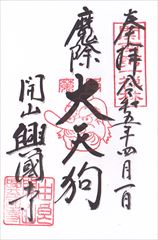 奉拝 令和五年四月一日
魔除
大天狗
開山 興國寺